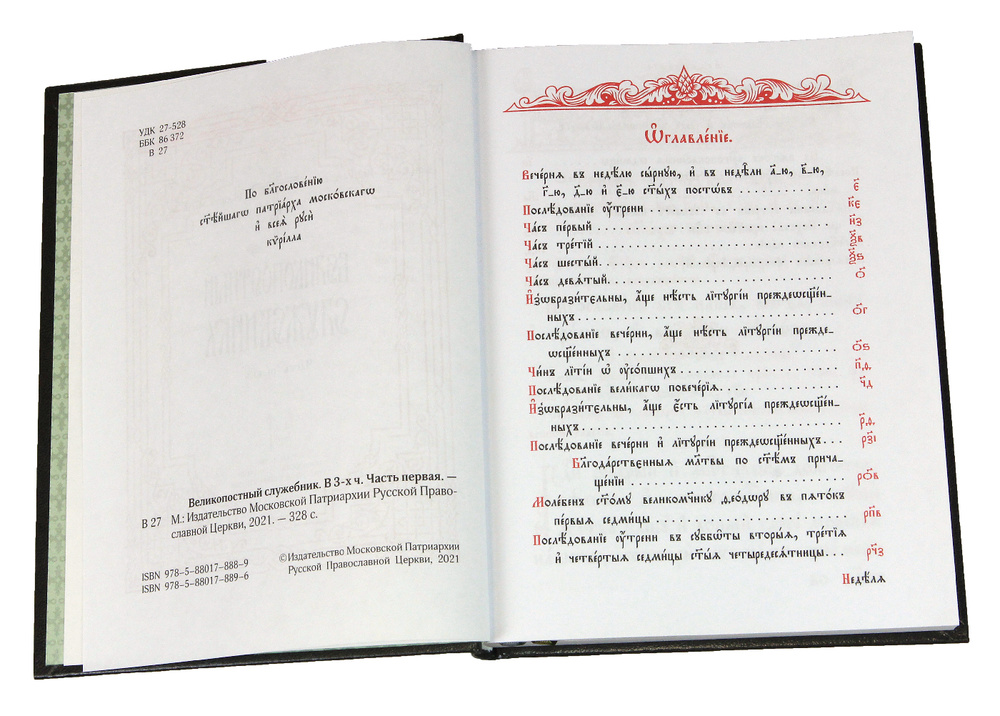 УДК 27-528
ББК 86 372
В 27
По бл҃гослове́нїю
ст҃ѣ́йшагѡ патрїа́рха моско́вскагѡ
и҆ всеѧ̀ рꙋсѝ
кѷрі́лла
Великопостный служебник. В 3-х ч. Часть первая. —
В 27 М.: Издательство Московской Патриархии Русской Право-
славной Церкви, 2021. — 328 с.
ISBN 978–5–88017–888–9
ISBN 978–5–88017–889–6
©Издательство Московской Патриархии
Русской Православной Церкви, 2021
Ѡ҆главле́нїе.
Вече́рнѧ въ недѣ́лю сы́рнꙋю, и҆ въ недѣ̑ли а҃-ю, в҃-ю,
г҃-ю, д҃-ю и҆ є҃-ю ст҃ы́хъ посто́въ . . . . . . . . . . . . є҃
Послѣ́дованїе ᲂу҆́трени . . . . . . . . . . . . . . . . . . . . к҃є
Ча́съ пе́рвый . . . . . . . . . . . . . . . . . . . . . . . . н҃з
Ча́съ тре́тїй . . . . . . . . . . . . . . . . . . . . . . . . ѯ҃в
Ча́съ шесты́й. . . . . . . . . . . . . . . . . . . . . . . . ѯ҃ѕ
Ча́съ девѧ́тый. . . . . . . . . . . . . . . . . . . . . . . о҃
И҆з̾ѡбрази́тєльны, а҆́ще нѣ́сть лїтꙋргі́и преждеѡсщ҃е́н-
ныхъ. . . . . . . . . . . . . . . . . . . . . . . . . . . о҃г
Послѣ́дованїе вече́рни, а҆́ще нѣ́сть лїтꙋргі́и прежде-
ѡсщ҃е́нныхъ . . . . . . . . . . . . . . . . . . . . . . о҃ѕ
Чи́нъ лїті́и ѡ҆ ᲂу҆со́пшихъ . . . . . . . . . . . . . . . . . п҃д
Послѣ́дованїе вели́кагѡ повече́рїѧ. . . . . . . . . . . . . ч҃д
И҆з̾ѡбрази́тєльны, а҆́ще є҆́сть лїтꙋргі́а преждеѡсщ҃е́н-
ныхъ. . . . . . . . . . . . . . . . . . . . . . . . . . . р҃д
Послѣ́дованїе вече́рни и҆ лїтꙋргі́и преждеѡсщ҃е́нныхъ. . . рз҃і
Бл҃года́рствєнныѧ мл҃твы по ст҃ѣ́мъ прича-
ще́нїи . . . . . . . . . . . . . . . . . . . . . . . . ро҃в
Моле́бенъ ст҃о́мꙋ великомч҃нкꙋ ѳео́дѡрꙋ въ пѧто́къ
пе́рвыѧ седми́цы . . . . . . . . . . . . . . . . . . . рп҃в
Послѣ́дованїе ᲂу҆́трени въ сꙋббѡ́ты вторы́ѧ, тре́тїѧ
и҆ четве́ртыѧ седми́цы ст҃ы́ѧ четыредесѧ́тницы. . . рч҃з
Недѣ́лѧ